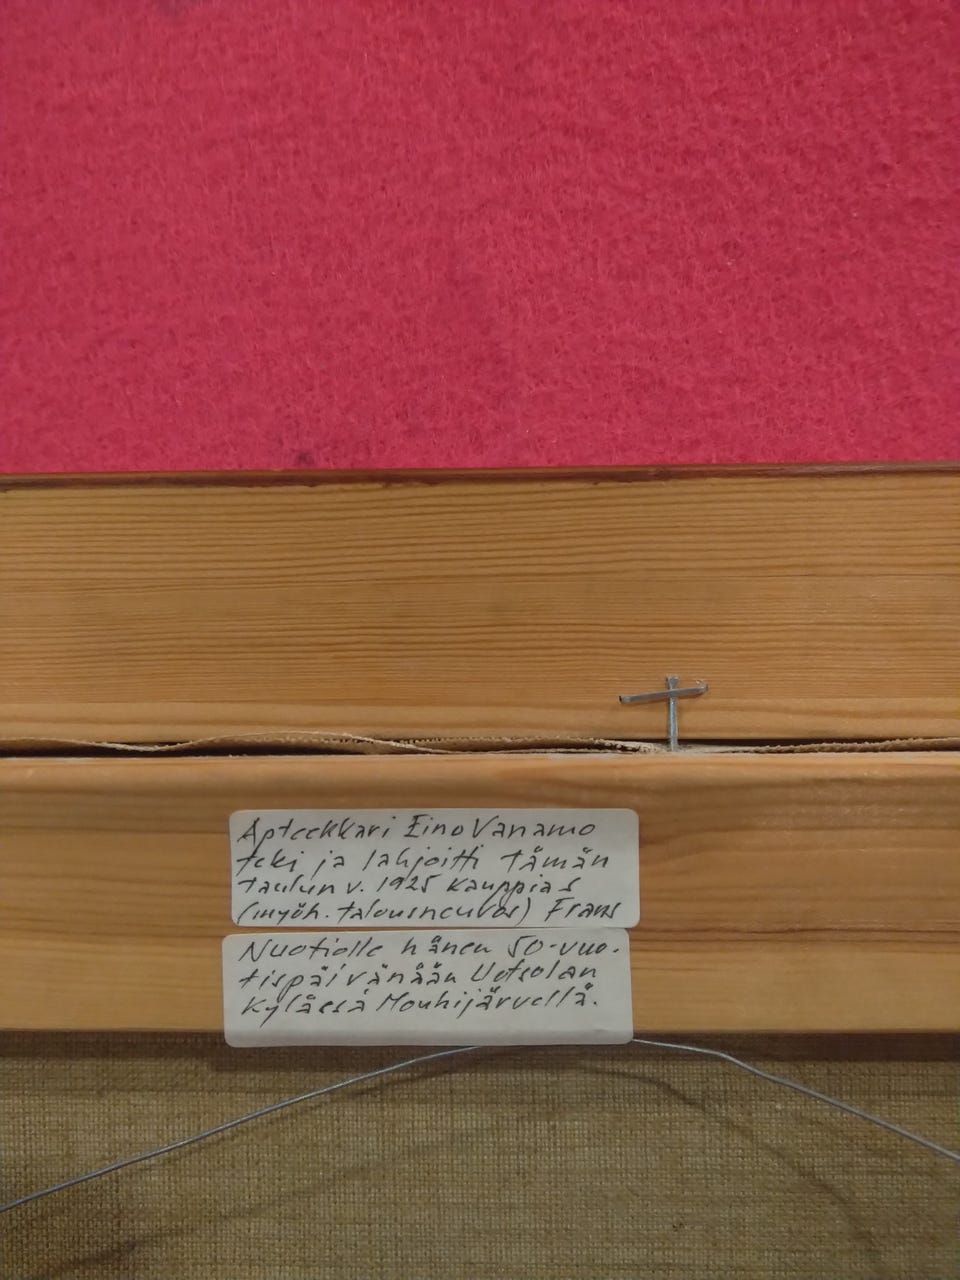 Apteekkari Eino Vanamo
teki ja lahjoitti tämän
taulun v. 1925 kauppias
(myöh. talousneuvos) Frans
Nuotiolle hänen 50-vuo-
tispäivänään Uotsolan
kylässä Mouhijärvellä.